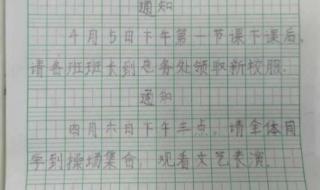 通知
4月5日下午第一节课下课后,
请各班班长到总务处领取新校服.
通知
四月六日下午三点,请全体同
学到操场集合,观看文艺表演.